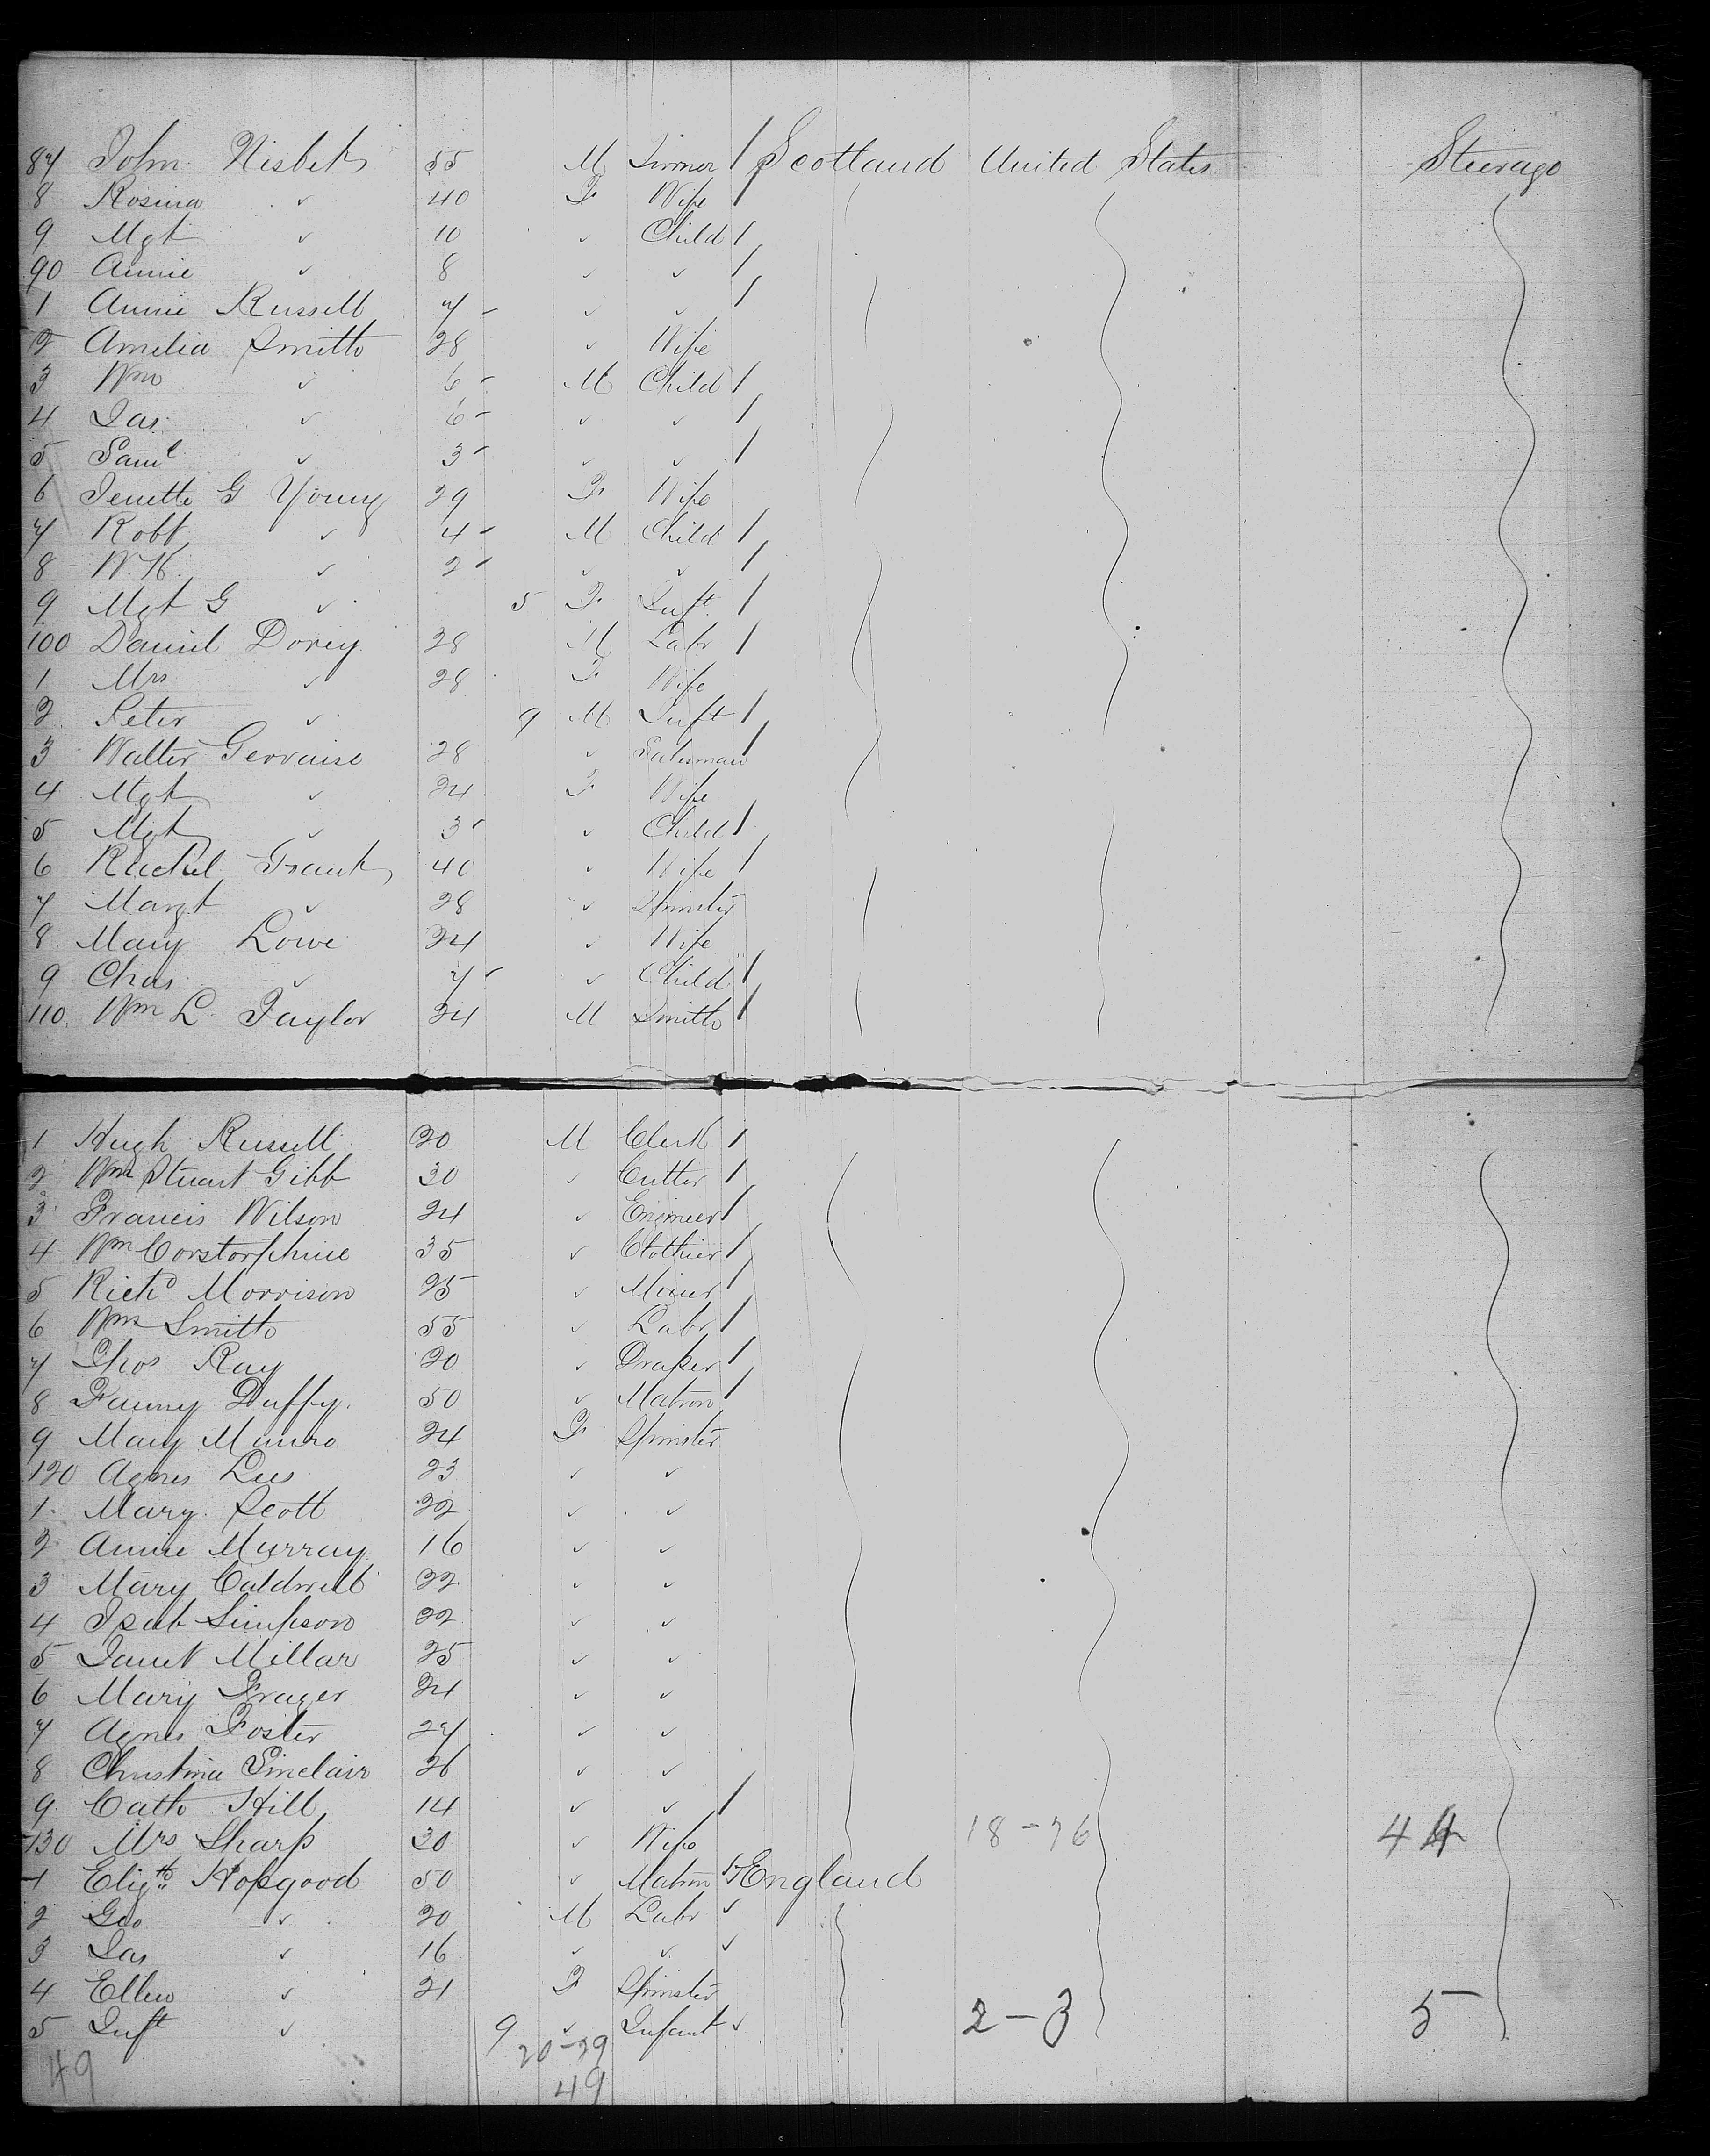 87 John Nisbet 55 M Scotland United States Steerage
8 Rosina ✓ 40 F Wife
9 Mgt ✓ 10 ✓ Child
90 Annie ✓ 8 ✓ ✓
1 Annie Russell 7 ✓ ✓
2 Amelia Smith 28 ✓ Wife
3 Wm ✓ 6 M Child
4 Jas ✓ 6 ✓ ✓
5 Saml ✓ 3 ✓ ✓
6 Jenette G Young 29 F Wife
7 Robt ✓ 4 M Child
8 W.K. ✓ 2 ✓ ✓
9 Mgt G ✓ 5 F Inft
100 Daniel Dorey 28 M Labr
1 Mrs ✓ 28 F Wife
2 Peter ✓ 9 M Inft
3 Walter Gervaise 28 ✓ Salesman
4 Mgt ✓ 24 F Wife
5 Mgt ✓ 3 ✓ Child
6 Rachel Grant 40 ✓ Wife
7 Margt ✓ 28 ✓ Spinster
8 Mary Lowe 24 ✓ Wife
9 Chas ✓ 7 ✓ Child
110 Wm L. Taylor 24 M Smith
1 Hugh Russell 20 M Clerk
2 Wm Stuart Gibb 30 ✓ Cutter
3 Francis Wilson 24 ✓ Engineer
4 Wm Corstorphine 35 ✓ Clothier
5 Richd Morrison 25 ✓ Miner
6 Wm Smith 55 ✓ Labr
7 Thos Ray 20 ✓ Draper
8 Fanny Duffy 50 ✓ Matron
9 Mary Munro 24 F Spinster
120 Agnes Lees 23 ✓ ✓
1 Mary Scott 22 ✓ ✓
2 Annie Murray 16 ✓ ✓
3 Mary Caldwell 22 ✓ ✓
4 Isab Simpson 22 ✓ ✓
5 Janet Millar 25 ✓ ✓
6 Mary Frazer 24 ✓ ✓
7 Agnes Foster 27 ✓ ✓
8 Christina Sinclair 26 ✓ ✓
9 Cath Hill 14 ✓ ✓
130 Mrs Sharp 30 ✓ Wife 18-26 44
1 Elizth Hopgood 50 ✓ Matron England
2 Geo ✓ 20 M Labr ✓
3 Jas ✓ 16 ✓ ✓ ✓
4 Ellen ✓ 21 F Spinster
5 Inft ✓ 9 ✓ Infant ✓ 2-3 5
20-29
49 49